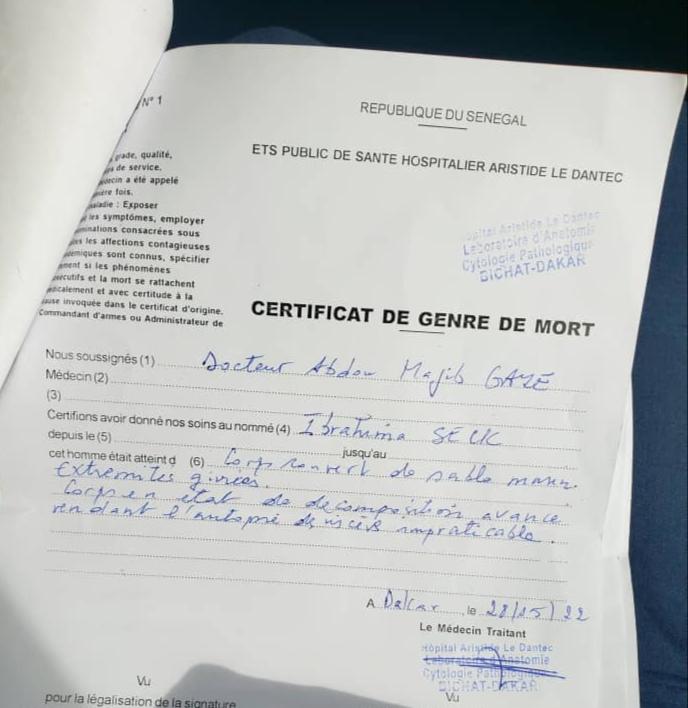 N° 1
REPUBLIQUE DU SENEGAL
ETS PUBLIC DE SANTE HOSPITALIER ARISTIDE LE DANTEC
grade, qualité,
de service.
a été appelé
fois.
: Exposer
les symptômes, employer
consacrées sous
les affections contagieuses
sont connus, spécifier
si les phénomènes
et la mort se rattachent
et avec certitude à la
invoquée dans le certificat d'origine.
Commandant d'armes ou Administrateur de
Hôpital Aristide Le Dantec
Laboratoire d'Anatomie
Cytologie Pathologique
BICHAT-DAKAR
CERTIFICAT DE GENRE DE MORT
Nous soussignés (1) Docteur Abdou Majib GAYE
Médecin (2)
(3)
Certifions avoir donné nos soins au nommé (4) Ibrahima SECK
depuis le (5) jusqu'au
cet homme était atteint d (6) Corps couvert de sable
Extremités
Corps en état de decomposition avance
rendant l'autopsie impraticable.
A Dakar, le
Le Médecin Traitant
Hôpital Aristide Le Dantec
Laboratoire d'Anatomie
Cytologie Pathologique
BICHAT-DAKAR
Vu
Vu
pour la légalisation de la signature